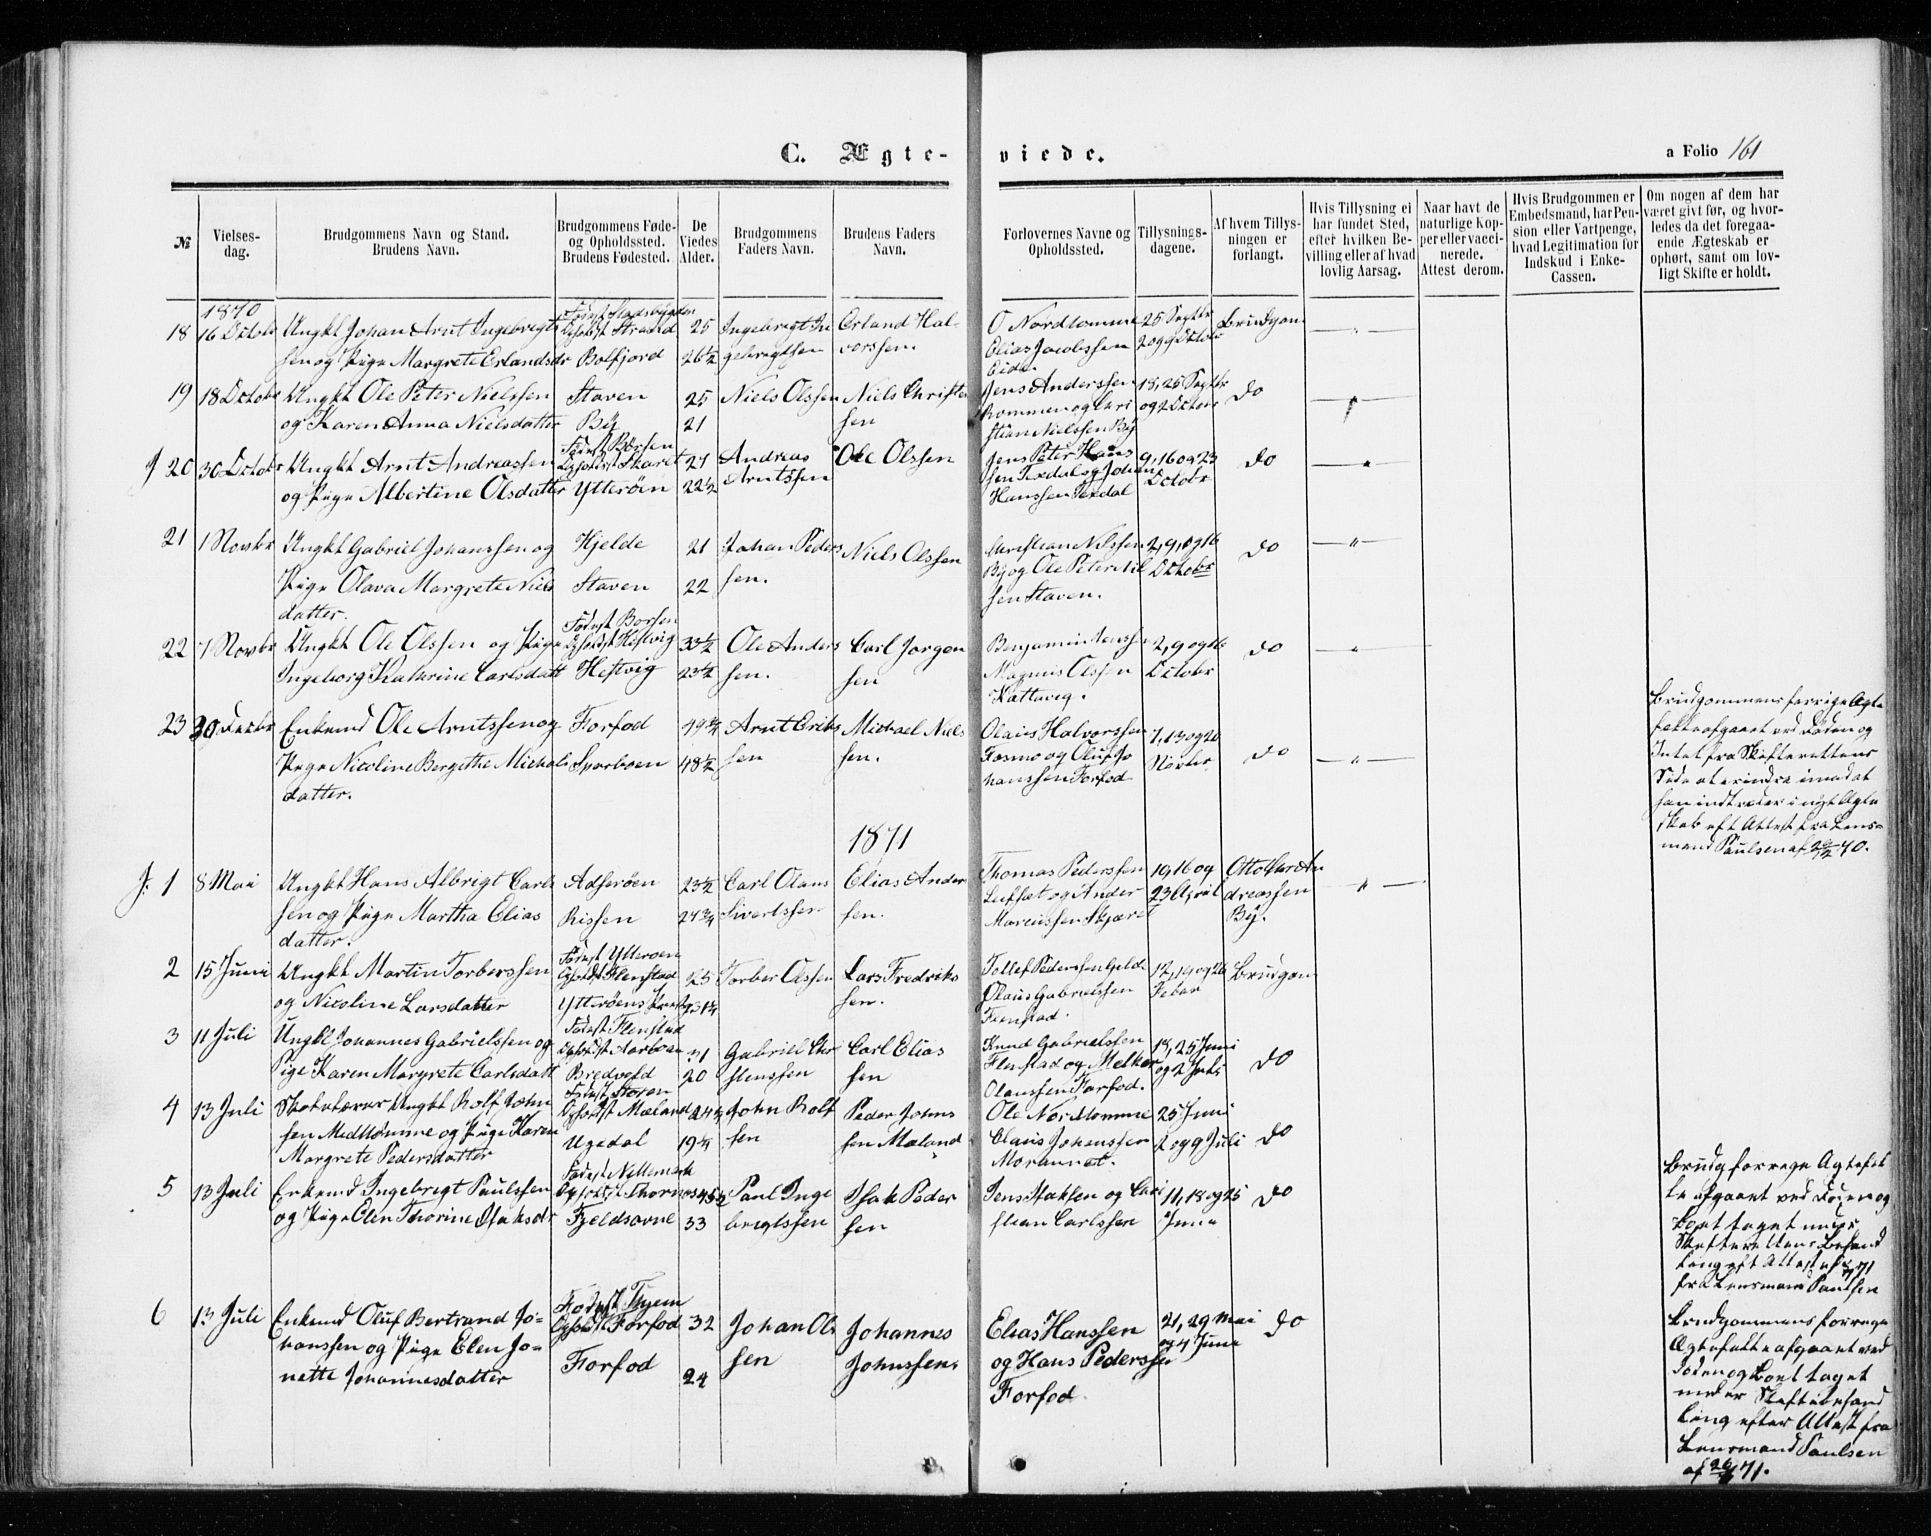 C. Ægte-viede.
a Folio 161
№
Vielses-
dag.
Brudgommens Navn og Stand.
Brudens Navn.
Brudgommens Føde-
og Opholdssted.
Brudens Fødested.
De
Viedes
Alder.
Brudgommens
Faders Navn.
Brudens Faders
Navn.
Forlovernes Navne og
Opholdssted.
Tillysnings-
dagene.
Af hvem Tillys-
ningen er
forlangt.
Hvis Tillysning ei
har fundet Sted,
efter hvilken Be-
villing eller af hvad
lovlig Aarsag.
Naar havt de
naturlige Kop-
per eller vacci-
nerede.
Attest derom.
Hvis Brudgommen er
Embedsmand, har Pen-
sion eller Vartpenge,
hvad Legitimation for
Indskud i Enke-
Cassen.
Om nogen af dem har
været givt før, og hvor-
ledes da det foregaa-
ende Ægteskab er
ophørt, samt om lov-
ligt Skifte er holdt.
1870
18 16 Octobr Ungkt Johan Arnt Ingebrigt
sen og Pige Margrete Erlandsdr
Fødest Stadsbygden
Opholdst Strand
Botfjord
25
26½
Ingebrigt In
gebrigtsen
Erland Hal-
vorssen.
O Nordtomme
Elias Jacobssen
Eide.
25 Septbr
2 og 9 Octobr
Brudgom
19 18 Octobr Ungkt Ole Peter Nielssen
og Karen Anna Nielsdatter
Staven
By
25
21
Niels Olssen
Niels Christen
sen
Jens Anderssen
Rommen og Chri
stian Nielssen By
18, 25 Septbr
og 2 Octobr
do
J 20 30 Octobr Ungkt Arnt Andreassen
og Pige Albertine Olsdatter
Fødest Børsen
Opholdst Skaret
Ytterøen
27
22½
Andreas
Arntssen
Ole Olssen
Jens Peter Hans
sen Texdal og Johan
Hanssen Texdal
9, 16 og 23
Octobr
do
21 1 Novbr Ungkt Gabriel Johanssen og
Pige Olava Margrete Niels
datter.
Hjelde
Staven
21
22
Johan Peders
sen.
Niels Olssen
Christian Nilssen
By og Ole Peter Nil
sen Staven.
2, 9, og 16
Octobr
do
22 1 Novbr Ungkt Ole Olssen og Pige
Ingeborg Kathrine Carlsdatt
Fødest Borsen
Opholdst Heftvig
Heftvig
33½
23½
Ole Anders
sen.
Carl Jorgen
sen
Benjamin Jenssen
Magnus Olssen
Kattavig.
2, 9 og 16
Octobr
do
23 30 Decbr Enkemd Ole Arntssen og
Pige Nicoline Bergithe Michels
datter.
Forfod
Sparboen
49¾
48½
Arnt Eriks
sen
Michael Niels
sen.
Olaus Halvorssen
Fosmo og Oluf Jo
hanssen Forfod
7, 13 og 20
Novbr
do
Brudgommens forrige Ægte
felle afgaaet ved Døden og
Intet fra Skifterettens
Side at erindre imod at
han indtræder i nyt Ægte
skab eft Attest fra Lens-
mand Paulsen af 29/12 70.
1871
J. 1 8 Mai Ungkt Hans Albrigt Carls
sen og Pige Martha Elias
datter.
Adserøen
Rissen
23½
24¾
Carl Olaus
Sivertssen
Elias Ander
sen.
Thomas Pederssen
Leksæt og Ander
Marcussen Skjæret
10, 16 og
23 April
Otto Chr An
dreassen
By.
2 15 Juni Ungkt Martin Torberssen
og Nicoline Larsdatter
Fødest Ytterøen
Opholdst Flenstad
Ytterøens Præst
25
Torber Olssen
Lars Fredriks
sen.
Tollef Pederssen Gjelde
Olaus Gabrielssen
Flenstad.
12, 19 og 26
Febr
Brudgom
3 11 Juli Ungkl Johannes Gabrielssen og
Pige Karen Margrete Carlsdatt
Fødest Flenstad
Opholdst Aarboen
Bredvold
21
20
Gabriel Chr
stenssen
Carl Elias
sen
Knud Gabrielssen
Flenstad og Melker
Olaussen Forfod.
18, 25 Juni
og 2 Juli
do
4 13 Juli Skolelærer Ungkt Rolf John
sen Medhømme og Pige Karen
Margrete Pedersdatter
Fødest Støren
Opholdst Mæland
Ugedal
24½
19¼
John Rolf
sen
Peder Johns
sen Mæland
Ole Nordtomme
Claus Johanssen
Morannet.
25 Juni
2 og 9 Juli
do
5 13 Juli Enkemd Ingebrigt Paulssen
og Pige Elen Thorine Isaksdr
Fødest Nellemark
Opholdst Thornes
Fjeldsovne
45½
33
Paul Inge
brigtssen
Isak Peder
sen
Jens Isaksen og Chri
stian Carlssen
11, 18 og 25
Juni
do
Brudg forrige Ægtefel
le afgaaet ved Døden og
Boet taget under
Skifterettens Behand
ling eft Attest af 71
fra Lensmand Paulsen
6 13 Juli Enkemd Oluf Bertrand Jo-
hanssen og Pige Elen Jo-
nette Johannesdatter
Fødest Thjem
Opholdst Forfod
Forfod
32
24
Johan Ols
sen
Johannes
Johnssen.
Elias Hanssen
og Hans Pederssen
Forfod.
21, 29 Mai
og 4 Juni
do
Brudgommens forrige
Ægtefelle afgaaet ved
Døden og Boet taget
under Skiftebehand
ling efter Attest fra
Lensmand Paulsen
af 71.